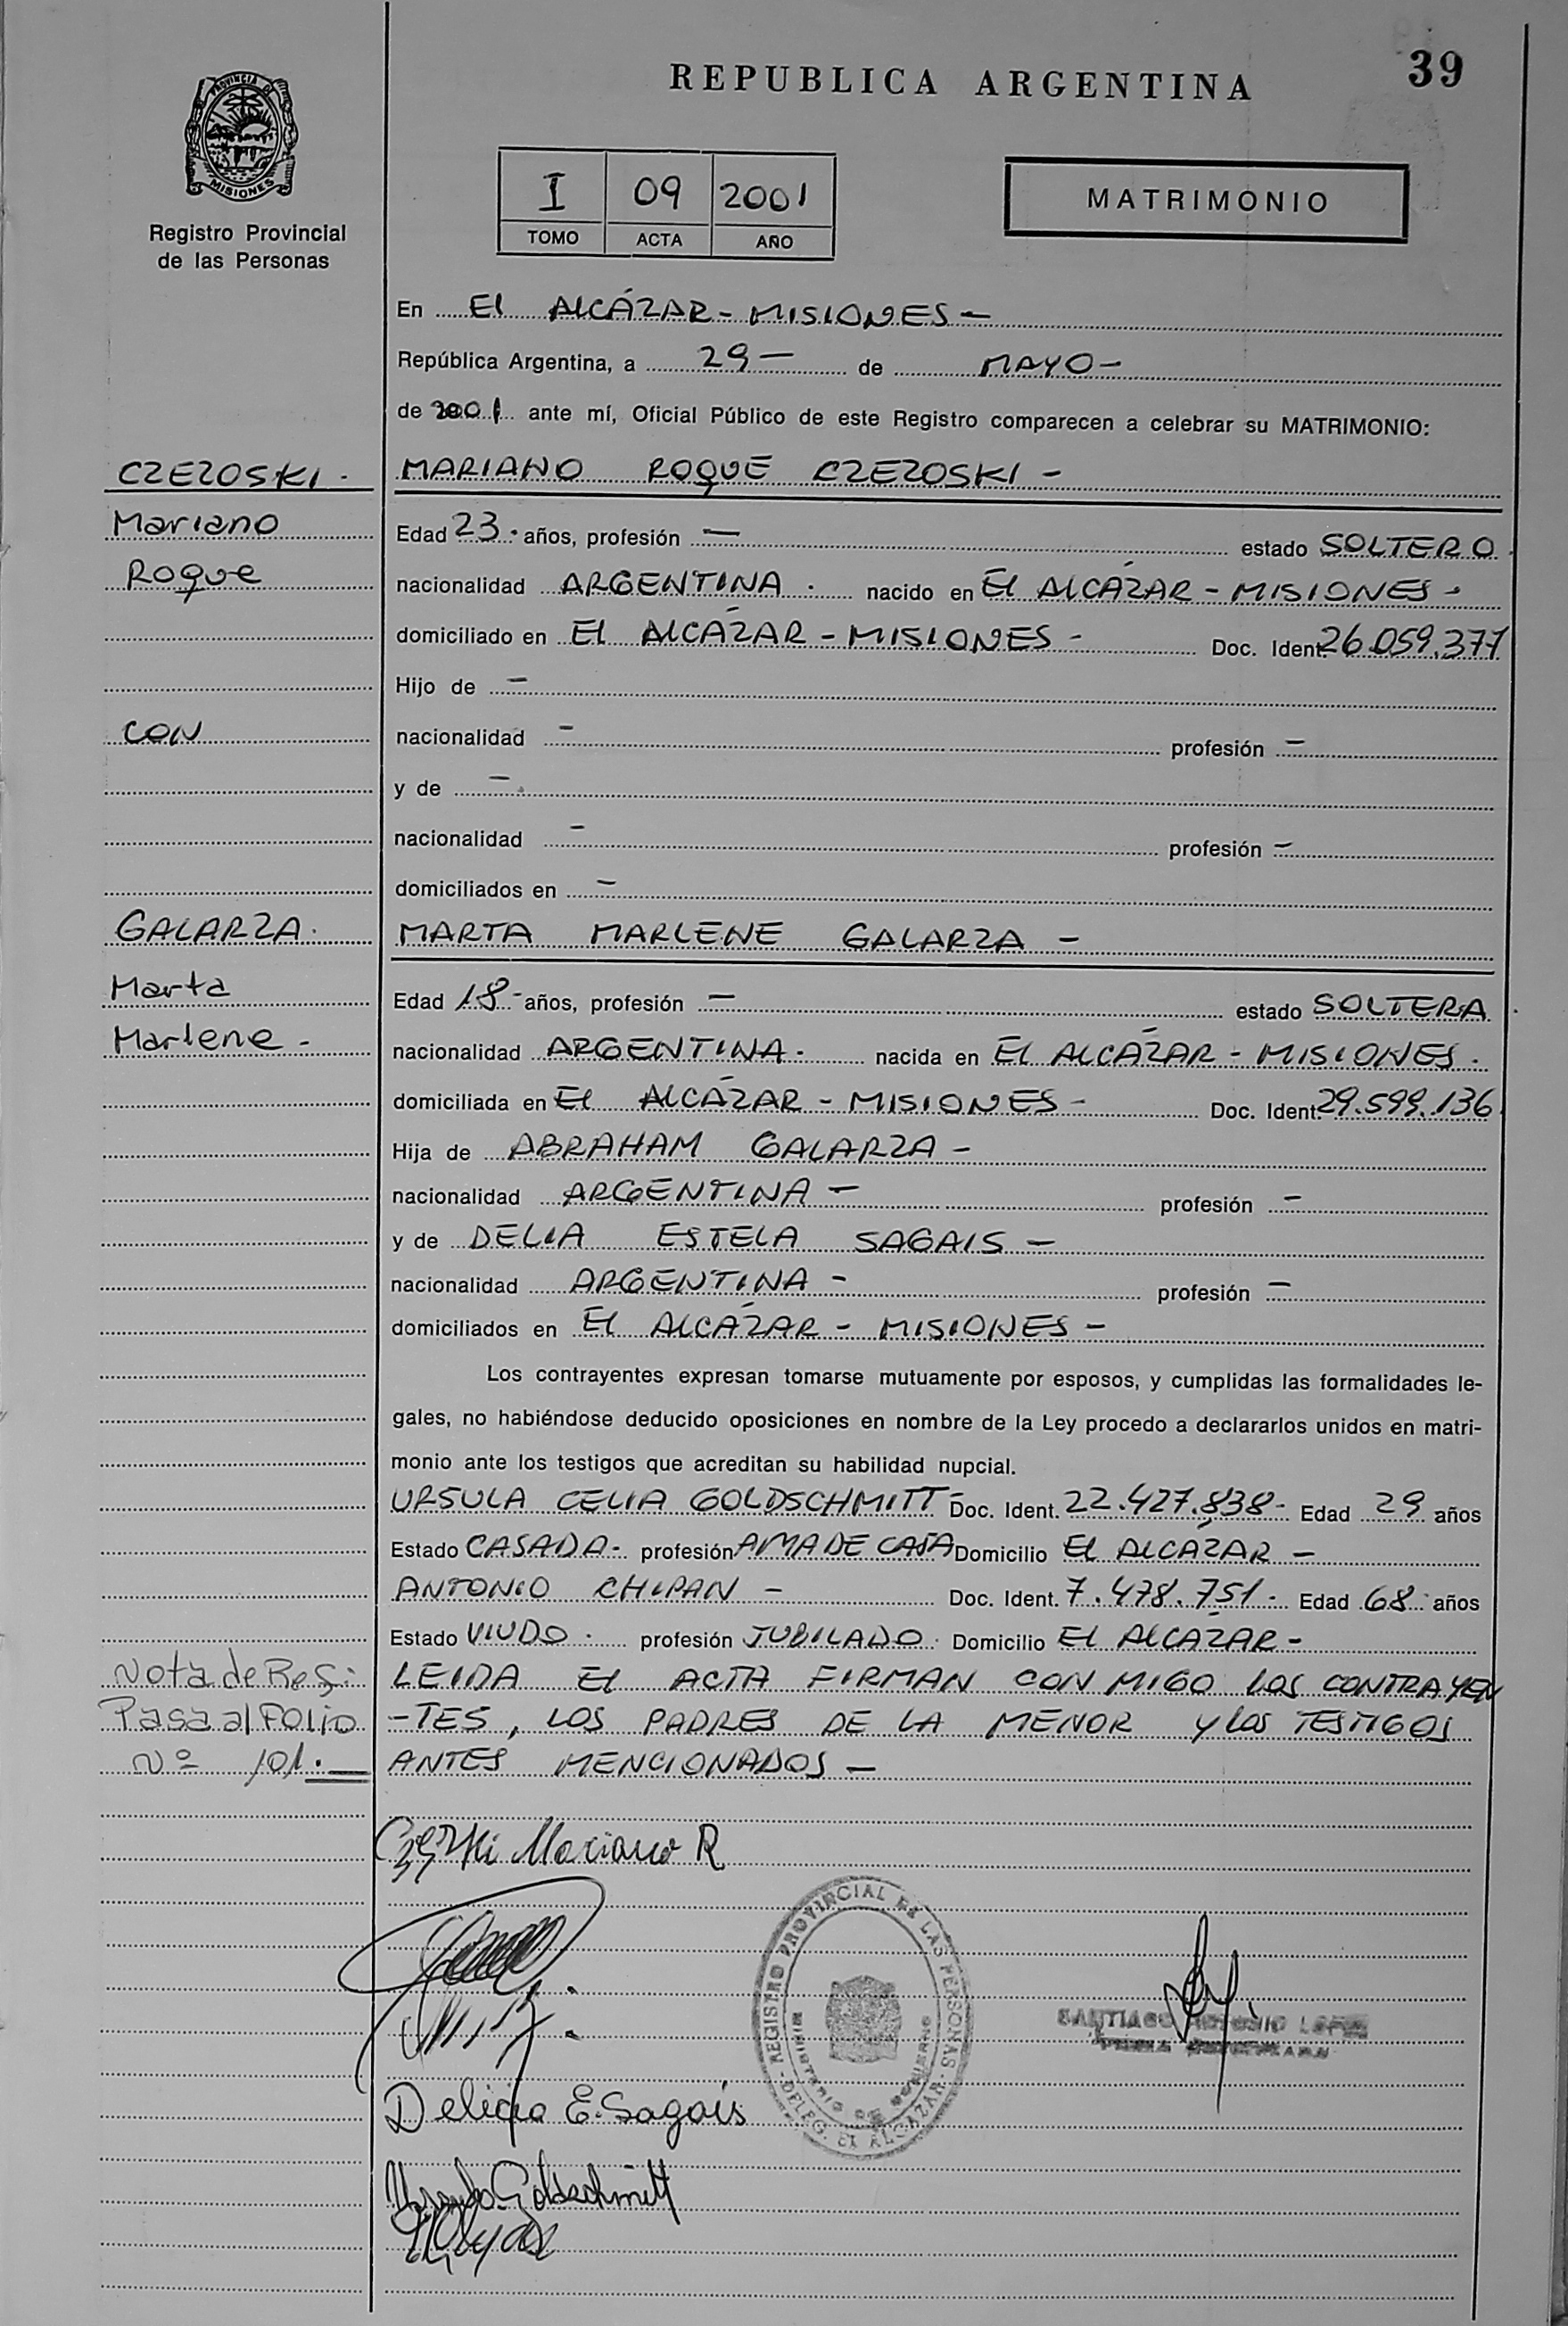 39
REPUBLICA ARGENTINA
PROVINCIA DE
MISIONES
Registro Provincial
de las Personas
I 09 2001
TOMO ACTA AÑO
MATRIMONIO
En El ALCÁZAR - MISIONES -
República Argentina, a 29 - de MAYO -
de 2001 ante mí, Oficial Público de este Registro comparecen a celebrar su MATRIMONIO:
CZEZOSKI - MARIANO ROQUE CZEZOSKI -
Mariano Edad 23 · años, profesión — estado SOLTERO
Roque nacionalidad ARGENTINA · nacido en El ALCÁZAR - MISIONES -
domiciliado en El ALCÁZAR - MISIONES - Doc. Ident. 26.059.377
Hijo de -
CON nacionalidad - profesión -
y de -
nacionalidad - profesión -
domiciliados en -
GALARZA · MARTA MARLENE GALARZA -
Marta Edad 18 - años, profesión — estado SOLTERA
Marlene - nacionalidad ARGENTINA · nacida en El ALCÁZAR - MISIONES ·
domiciliada en El ALCÁZAR - MISIONES - Doc. Ident. 29.599.136
Hija de ABRAHAM GALARZA -
nacionalidad ARGENTINA - profesión -
y de DELIA ESTELA SAGAIS -
nacionalidad ARGENTINA - profesión -
domiciliados en El ALCÁZAR - MISIONES -
Los contrayentes expresan tomarse mutuamente por esposos, y cumplidas las formalidades le-
gales, no habiéndose deducido oposiciones en nombre de la Ley procedo a declararlos unidos en matri-
monio ante los testigos que acreditan su habilidad nupcial.
URSULA CELIA GOLDSCHMITT - Doc. Ident. 22.427.838 - Edad 29 años
Estado CASADA - profesión AMA DE CASA Domicilio El ALCÁZAR -
ANTONIO CHIPAN - Doc. Ident. 7.478.751 - Edad 68 · años
Estado VIUDO · profesión JUBILADO · Domicilio El ALCÁZAR -
Nota de Ref: LEIDA El ACTA FIRMAN CON MIGO LOS CONTRAYEN
Pasa al Folio -TES, LOS PADRES DE LA MENOR Y LOS TESTIGOS
Nº 101. — ANTES MENCIONADOS -
Mariano R
REGISTRO PROVINCIAL DE LAS PERSONAS - DELEG. EL ALCAZAR -
MINISTERIO DE GOBIERNO
SANTIAGO ANTONIO
Delicia E. Sagais
Goldschmitt